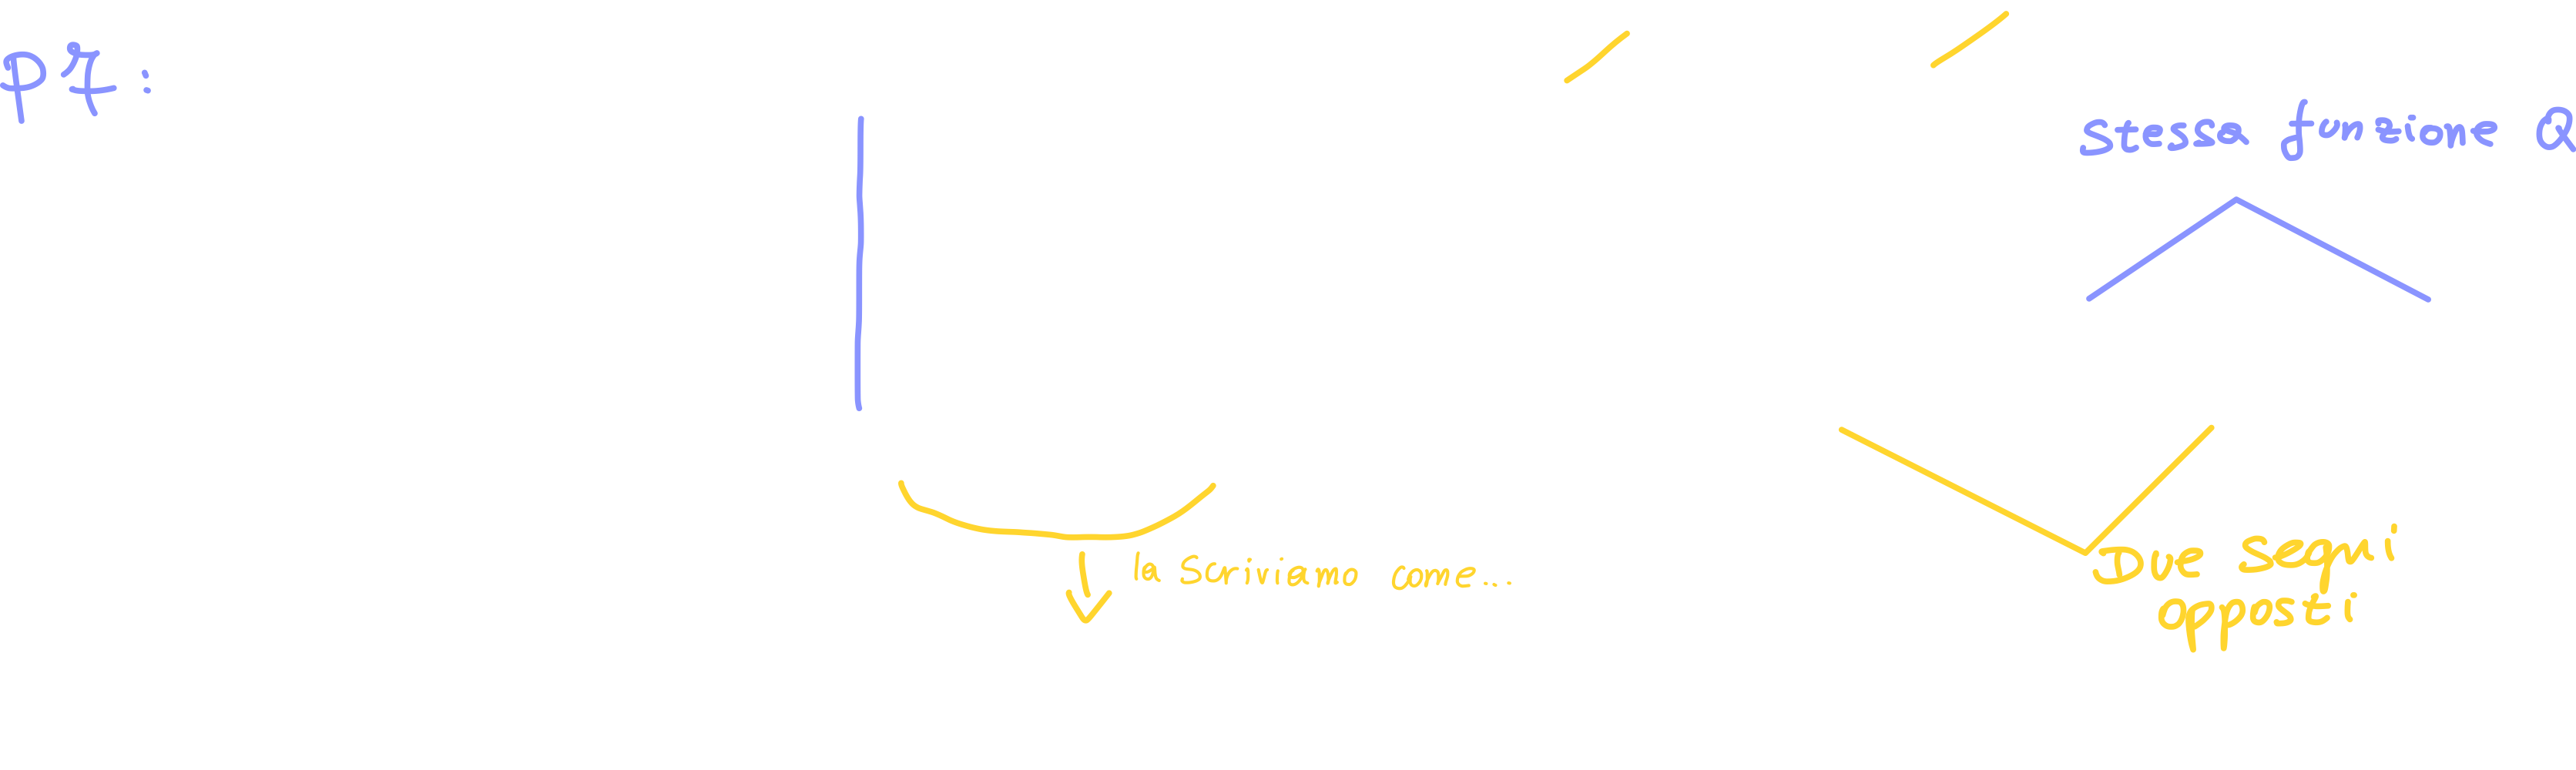 Pz:
Stessa funzione Q
la scriviamo come...
Due segni
opposti